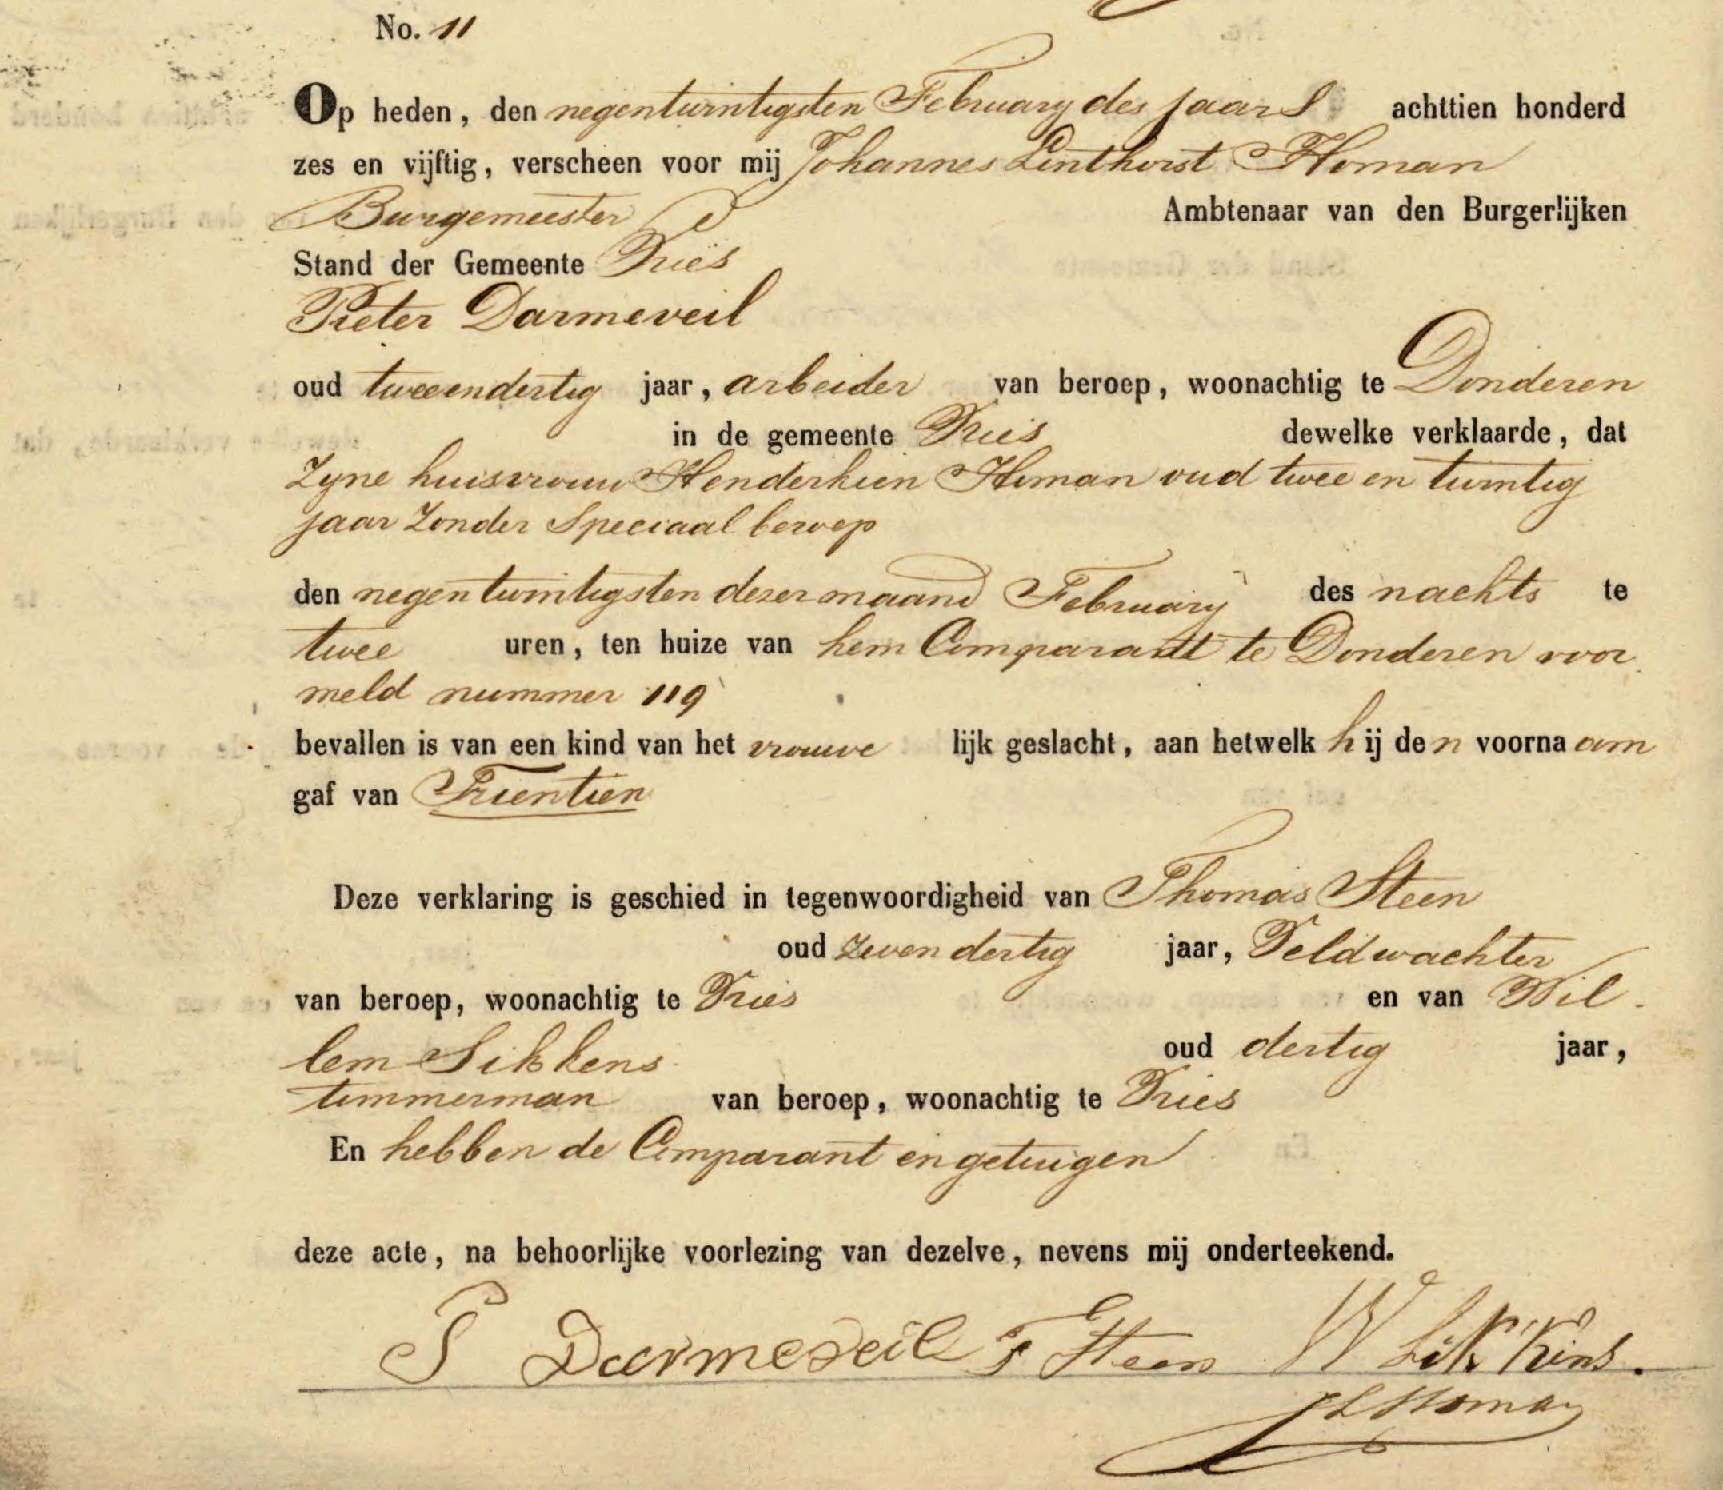 No. 11
Op heden, den negentwintigsten February des jaars achttien honderd
zes en vijftig, verscheen voor mij Johannes Linthorst Homan
Burgemeester Ambtenaar van den Burgerlijken
Stand der Gemeente Vries
Pieter Darmeveil
oud tweeendertig jaar, arbeider van beroep, woonachtig te Donderen
in de gemeente Vries dewelke verklaarde, dat
Zyne huisvrouw Henderkien Homan oud twee en twintig
jaar Zonder Speciaal beroep
den negentwintigsten dezer maand February des nachts te
twee uren, ten huize van hem Comparant te Donderen voor
meld nummer 119
bevallen is van een kind van het vrouwe lijk geslacht, aan hetwelk hij den voornaam
gaf van Trientien
Deze verklaring is geschied in tegenwoordigheid van Thomas Steen
oud zeven dertig jaar, Veldwachter
van beroep, woonachtig te Vries en van Wil
lem Sikkens oud dertig jaar,
timmerman van beroep, woonachtig te Vries
En hebben de Comparant en getuigen
deze acte, na behoorlijke voorlezing van dezelve, nevens mij onderteekend.
P Darmeveil T Steen W Sikkens.
JLHoman